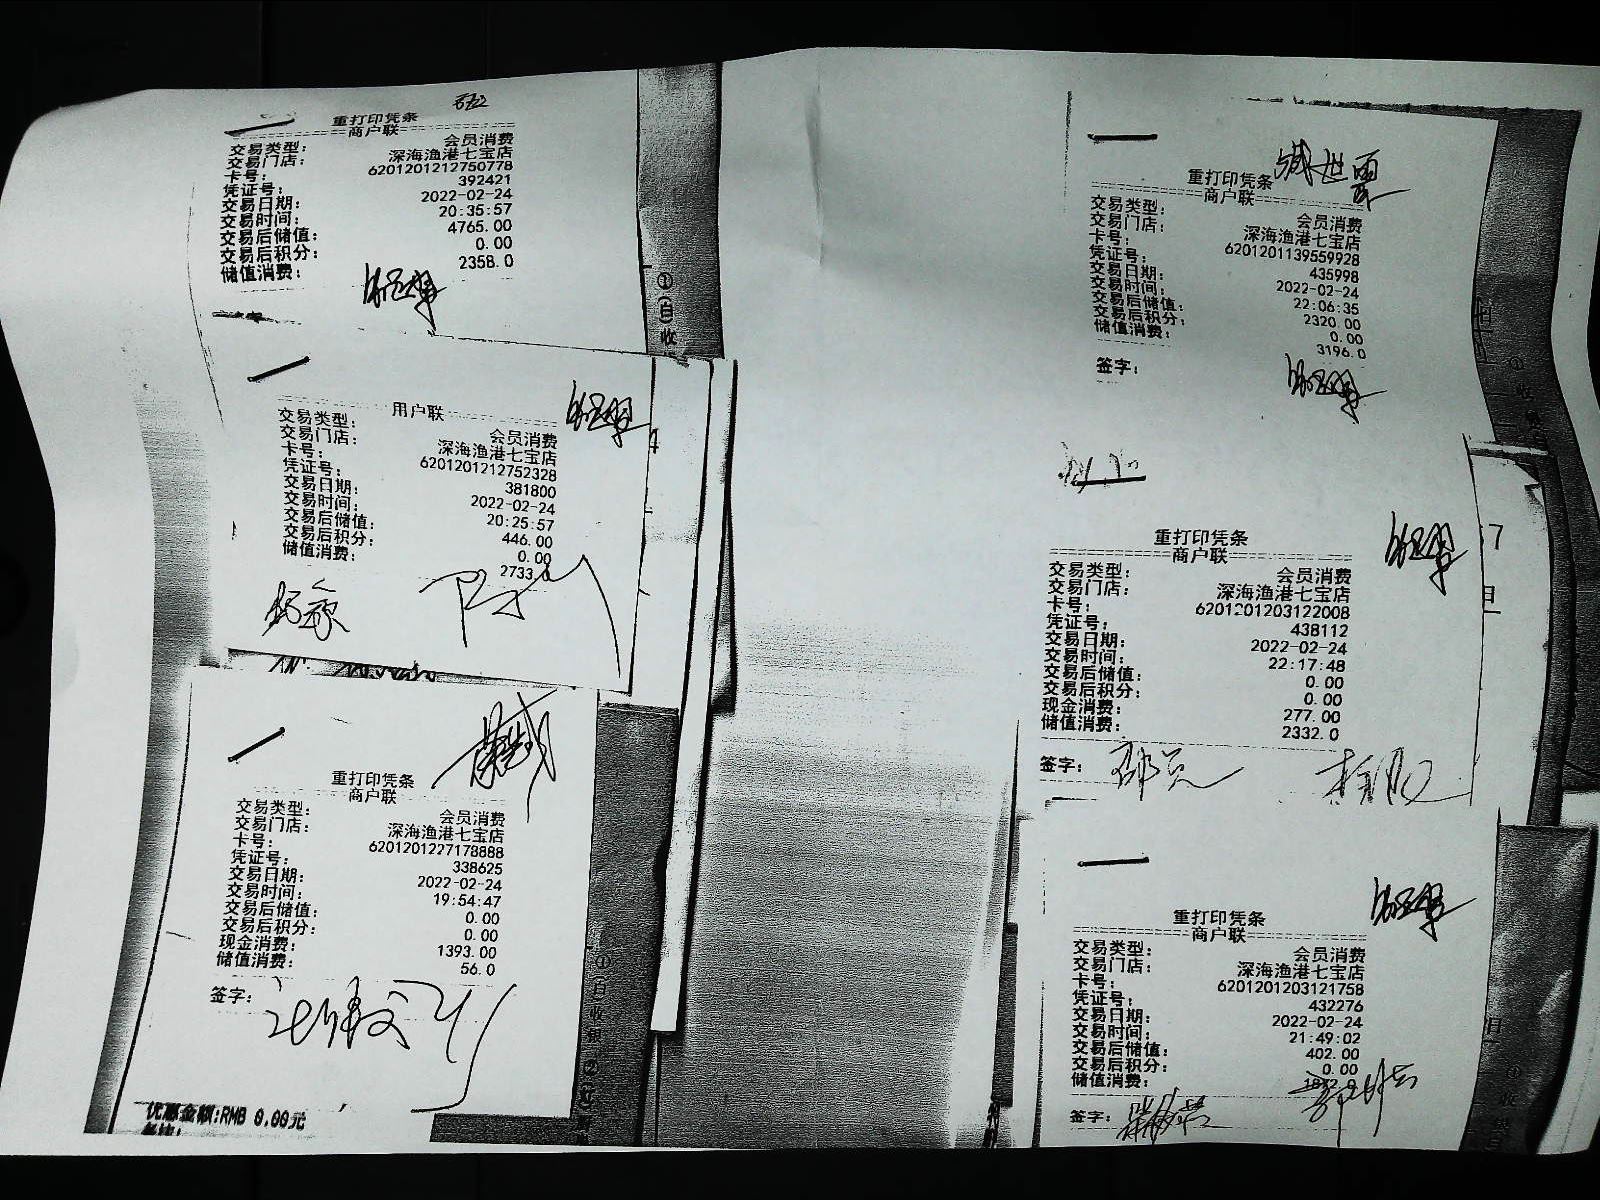 重打印凭条
商户联
交易类型： 会员消费
交易门店： 深海渔港七宝店
卡号： 6201201212750778
凭证号： 392421
交易日期： 2022-02-24
交易时间： 20:35:57
交易后储值： 4765.00
交易后积分： 0.00
储值消费： 2358.0
①(自收
用户联
交易类型： 会员消费
交易门店： 深海渔港七宝店
卡号： 6201201212752328
凭证号： 381800
交易日期： 2022-02-24
交易时间： 20:25:57
交易后储值： 446.00
交易后积分： 0.00
储值消费： 2733.0
重打印凭条
商户联
交易类型： 会员消费
交易门店： 深海渔港七宝店
卡号： 6201201227178888
凭证号： 338625
交易日期： 2022-02-24
交易时间： 19:54:47
交易后储值： 0.00
交易后积分： 0.00
现金消费： 1393.00
储值消费： 56.0
签字：
优惠金额:RMB 0.00元
重打印凭条
商户联
交易类型： 会员消费
交易门店： 深海渔港七宝店
卡号： 6201201139559928
凭证号： 435998
交易日期： 2022-02-24
交易时间： 22:06:35
交易后储值： 2320.00
交易后积分： 0.00
储值消费： 3196.0
签字：
重打印凭条
商户联
交易类型： 会员消费
交易门店： 深海渔港七宝店
卡号： 6201201203122008
凭证号： 438112
交易日期： 2022-02-24
交易时间： 22:17:48
交易后储值： 0.00
交易后积分： 0.00
现金消费： 277.00
储值消费： 2332.0
签字：
重打印凭条
商户联
交易类型： 会员消费
交易门店： 深海渔港七宝店
卡号： 6201201203121758
凭证号： 432276
交易日期： 2022-02-24
交易时间： 21:49:02
交易后储值： 402.00
交易后积分： 0.00
储值消费：
签字：